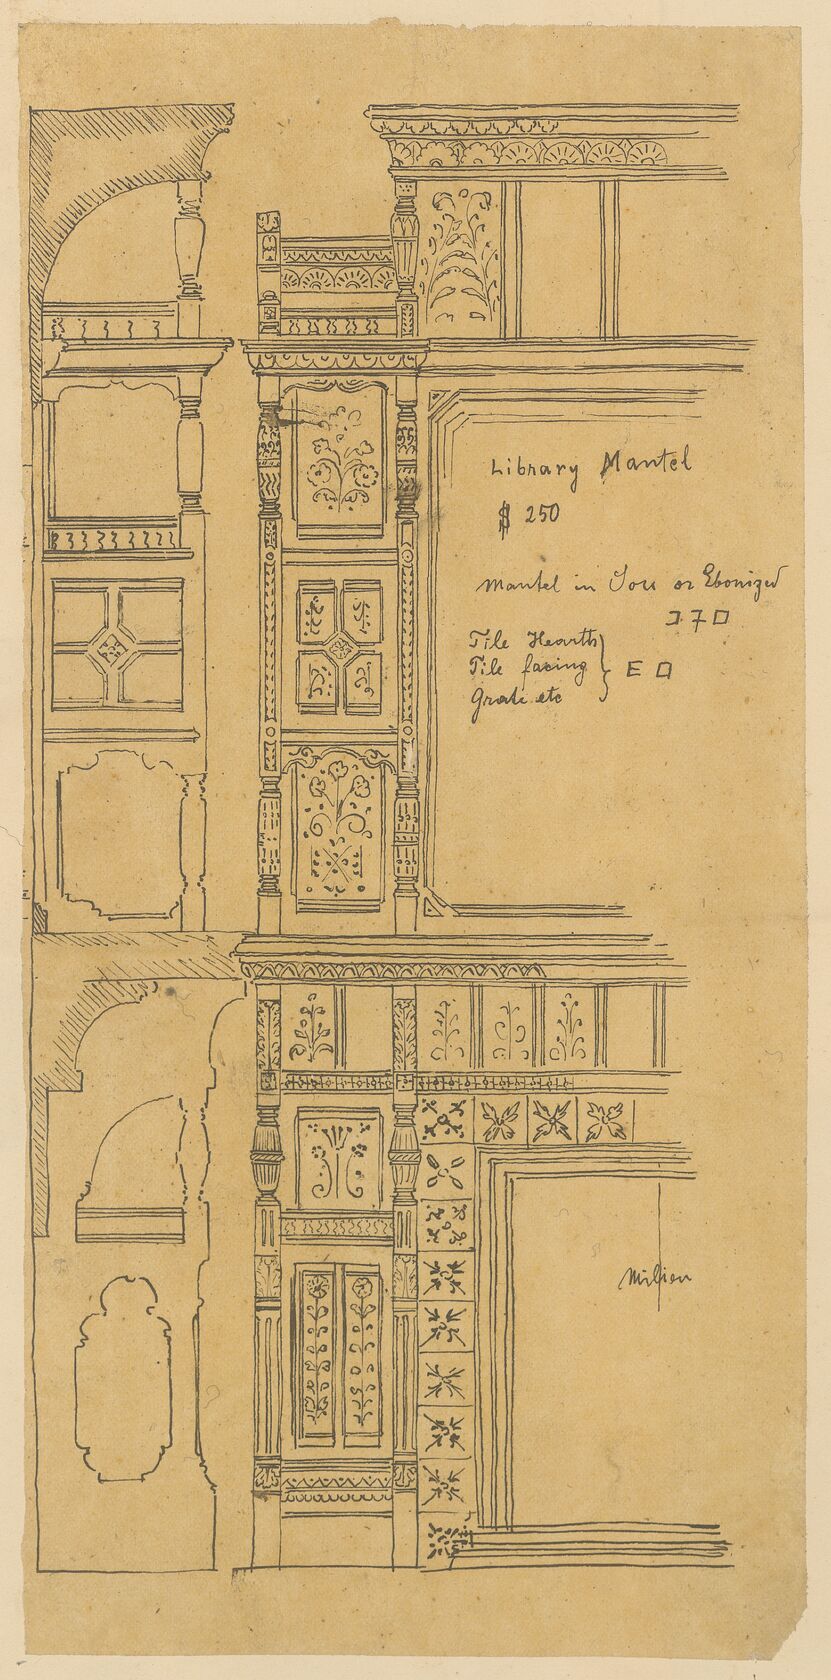 Library Mantel
$ 250
Mantel in or Ebonized
Tile Hearth
Tile facing
Grate etc
Milieu